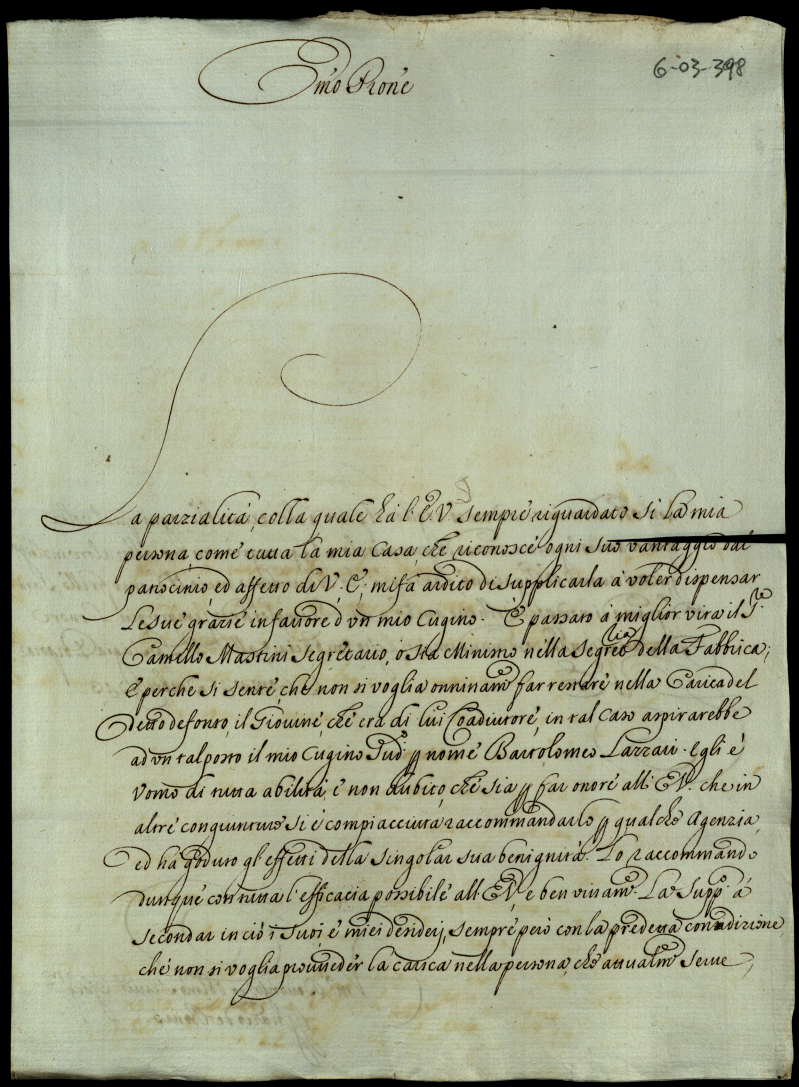 Emo Prone
6-03-398
La parzialità, colla quale hà l'E.V. sempre riguardato si la mia
persona, come tutta la mia Casa, che riconosce ogni suo vantaggio dal
patrocinio, ed affetto di V. E, mi fà ardito di supplicarla à voler dispensar
Le sue grazie in favore d'un mio Cugino. È passato à miglior vita il Sr.
Camello Mastini segretario, ò sia Minimo nella Segretia della Fabbrica;
E perche si sente, che non si voglia onninamte far restare nella Carica del
detto defonto, il Giovine, che era di lui Coadiutore, in tal caso aspirarebbe
ad un tal posto il mio Cugino Sudo p nome Bartolomeo Lazzari. Egli è
Vomo di tutta abilità, e non dubito, che sia p far onore all'E.V. che in
altre congiunture si è compiacciuta raccommandarlo p qualche Agenzia,
ed ha goduto gl'effetti della singolar sua benignità. Lo raccommando
dunque con tutta l'efficacia possibile all'E.V. e ben vivamte. La suppco à
secondar in ciò i suoi, e miei desiderj, sempre però con la predetta condizione
che non si voglia proveder la carica nella persona, che attualmte serve,